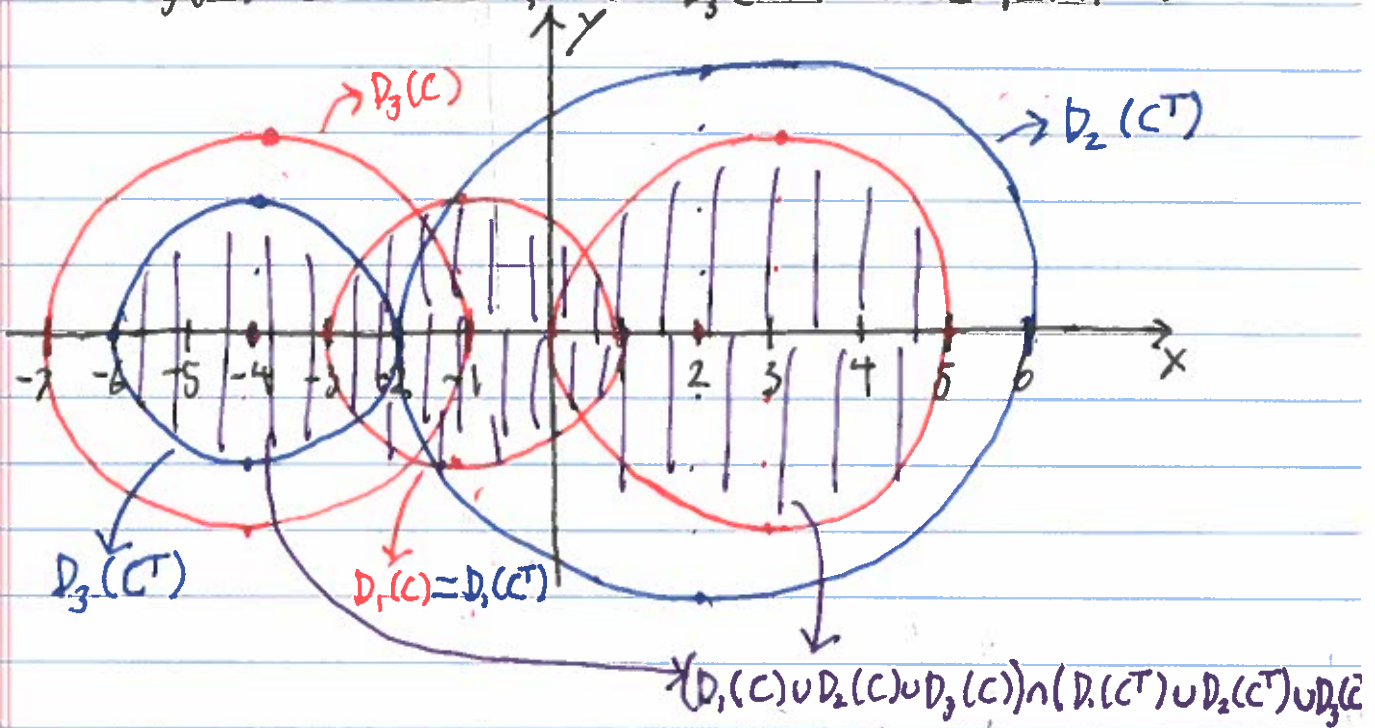 y
D₃(C)
D₂(Cᵀ)
-7 -6 -5 -4 -3 -2 -1 2 3 4 5 6 x
D₃(Cᵀ)
D₁(C)=D₁(Cᵀ)
(D₁(C)∪D₂(C)∪D₃(C))∩(D₁(Cᵀ)∪D₂(Cᵀ)∪D₃(C